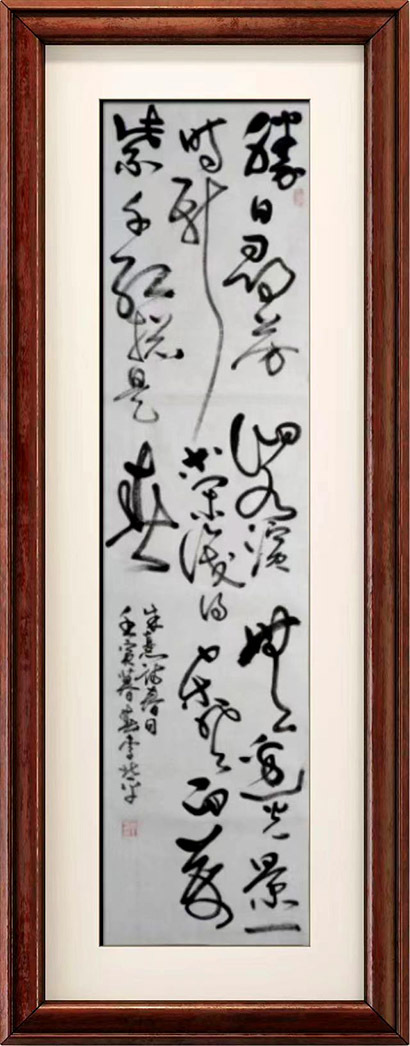 勝日尋芳泗水濱無邊光景一
時新等閑識得東風面萬
紫千紅總是春
朱熹詩春日
壬寅暮春李